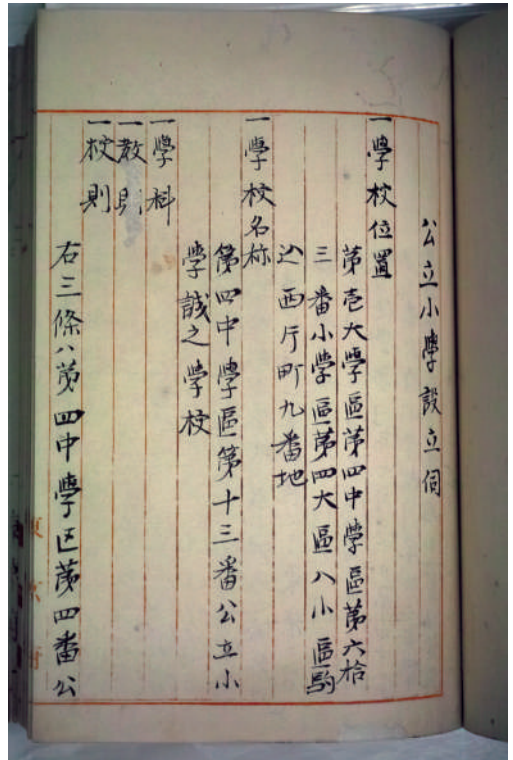 公立小學設立伺
一學校位置
第壱大學區第四中學區第六拾
三番小学區第四大區八小區駒
込西片町九番地
一學校名称
第四中學區第十三番公立小
學誠之學校
一學科
一教則
一校則
右三條ハ第四中學区第四番公
東京府